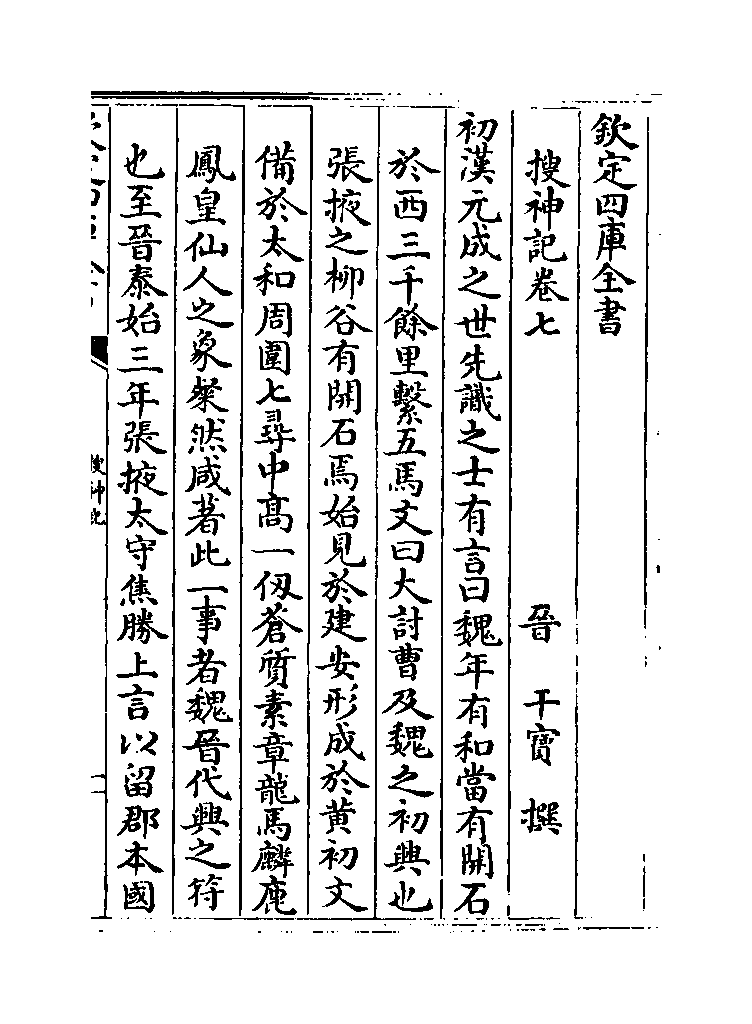 欽定四庫全書
搜神記卷七
晉　干寶　撰
初漢元成之世先識之士有言曰魏年有和當有開石
於西三千餘里繫五馬文曰大討曹及魏之初興也
張掖之柳谷有開石焉始見於建安形成於黃初文
備於太和周圍七尋中髙一仭蒼質素章龍馬麟鹿
鳳皇仙人之象粲然咸著此一事者魏晉代興之符
也至晉泰始三年張掖太守焦勝上言以留郡本國
搜神記